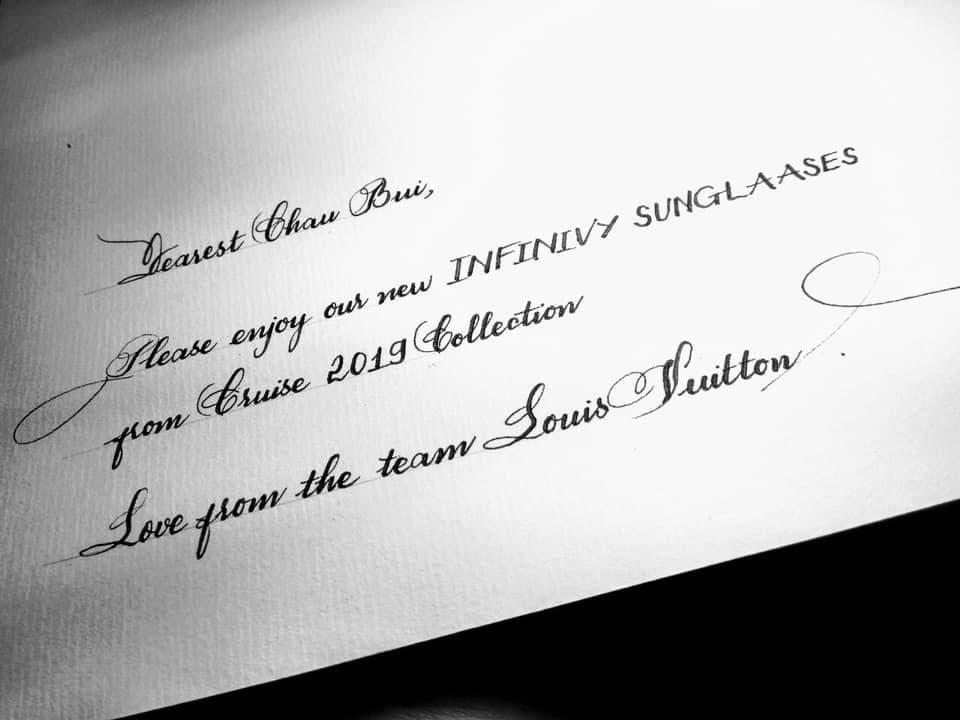 Dearest Chau Bui,
Please enjoy our new INFINIVY SUNGLAASES
from Cruise 2019 Collection
Love from the team Louis Vuitton